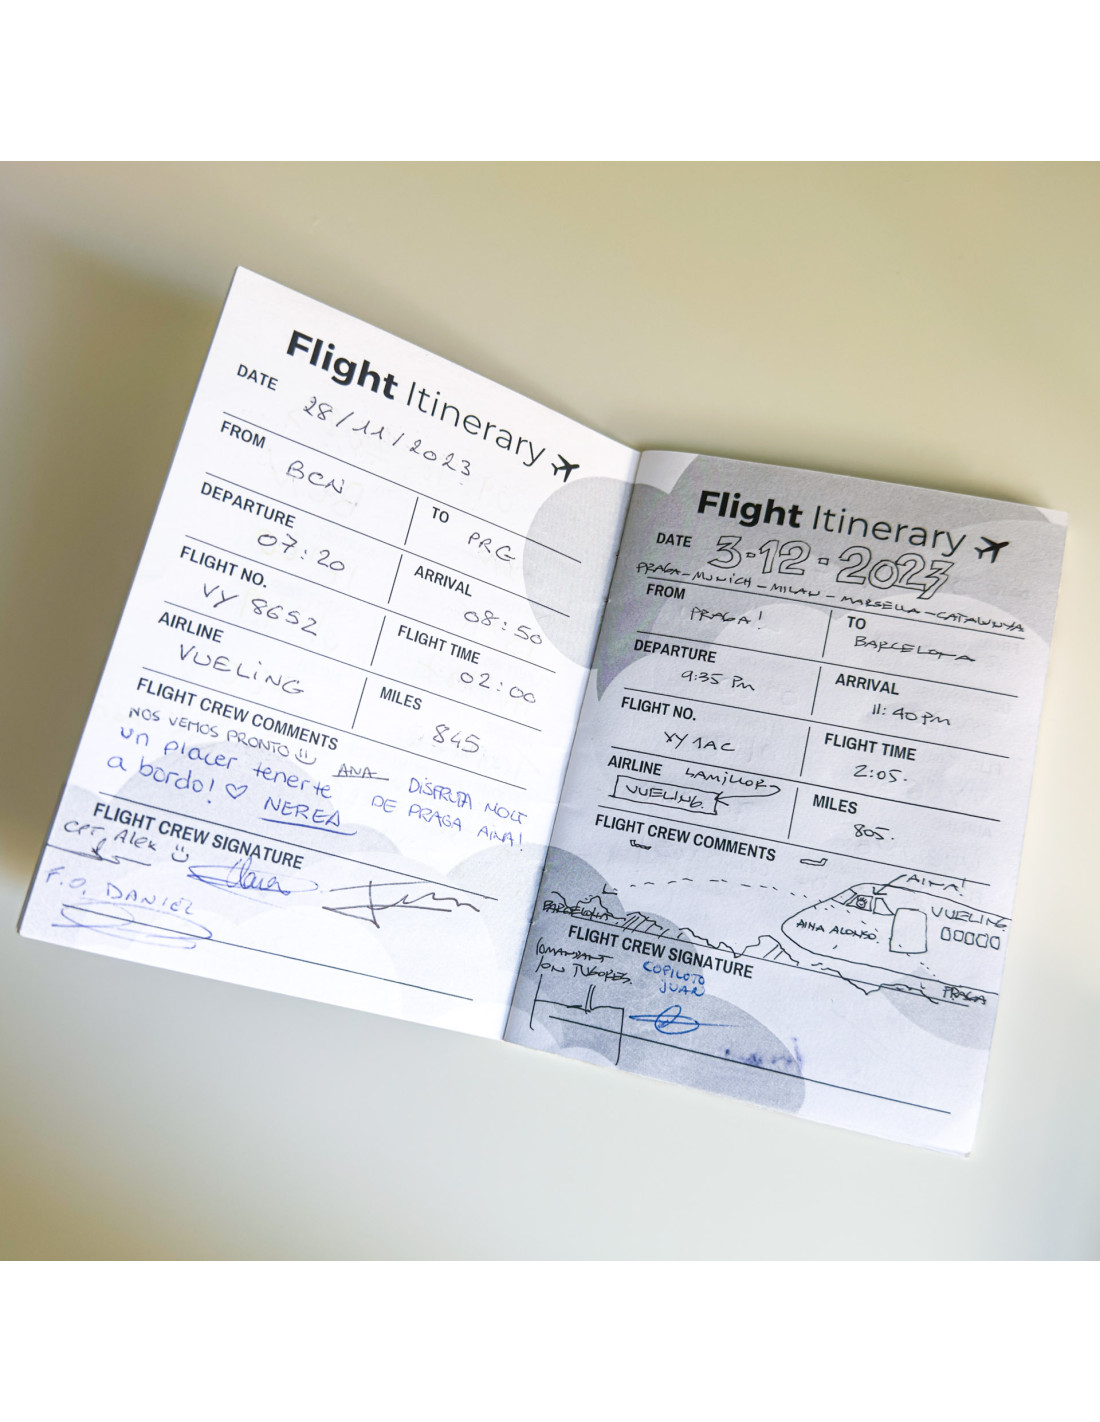 Flight Itinerary
DATE
28/11/2023
FROM
BCN
TO
PRG
DEPARTURE
07:20
ARRIVAL
08:50
FLIGHT NO.
VY 8652
FLIGHT TIME
02:00
AIRLINE
VUELING
MILES
845
FLIGHT CREW COMMENTS
NOS VEMOS PRONTO
ANA
un placer tenerte
a bordo! ♡ NEREA
DISFRUTA MOLT
DE PRAGA AINA!
FLIGHT CREW SIGNATURE
CPT. Alex
F.O. DANIEL
Flight Itinerary
DATE
3-12-2023
PRAGA - MUNICH - MILAN - MARSELLA - CATALUNYA
FROM
PRAGA!
TO
BARCELONA
DEPARTURE
9:35 Pm
ARRIVAL
11:40 pm
FLIGHT NO.
VY 1AC
FLIGHT TIME
2:05.
AIRLINE
LAMILLOR
VUELING.
MILES
805.
FLIGHT CREW COMMENTS
AINA!
VUELING
AINA ALONSO.
BARCELONA.
PRAGA
FLIGHT CREW SIGNATURE
COMANDANT
COPILOTO
JUAN